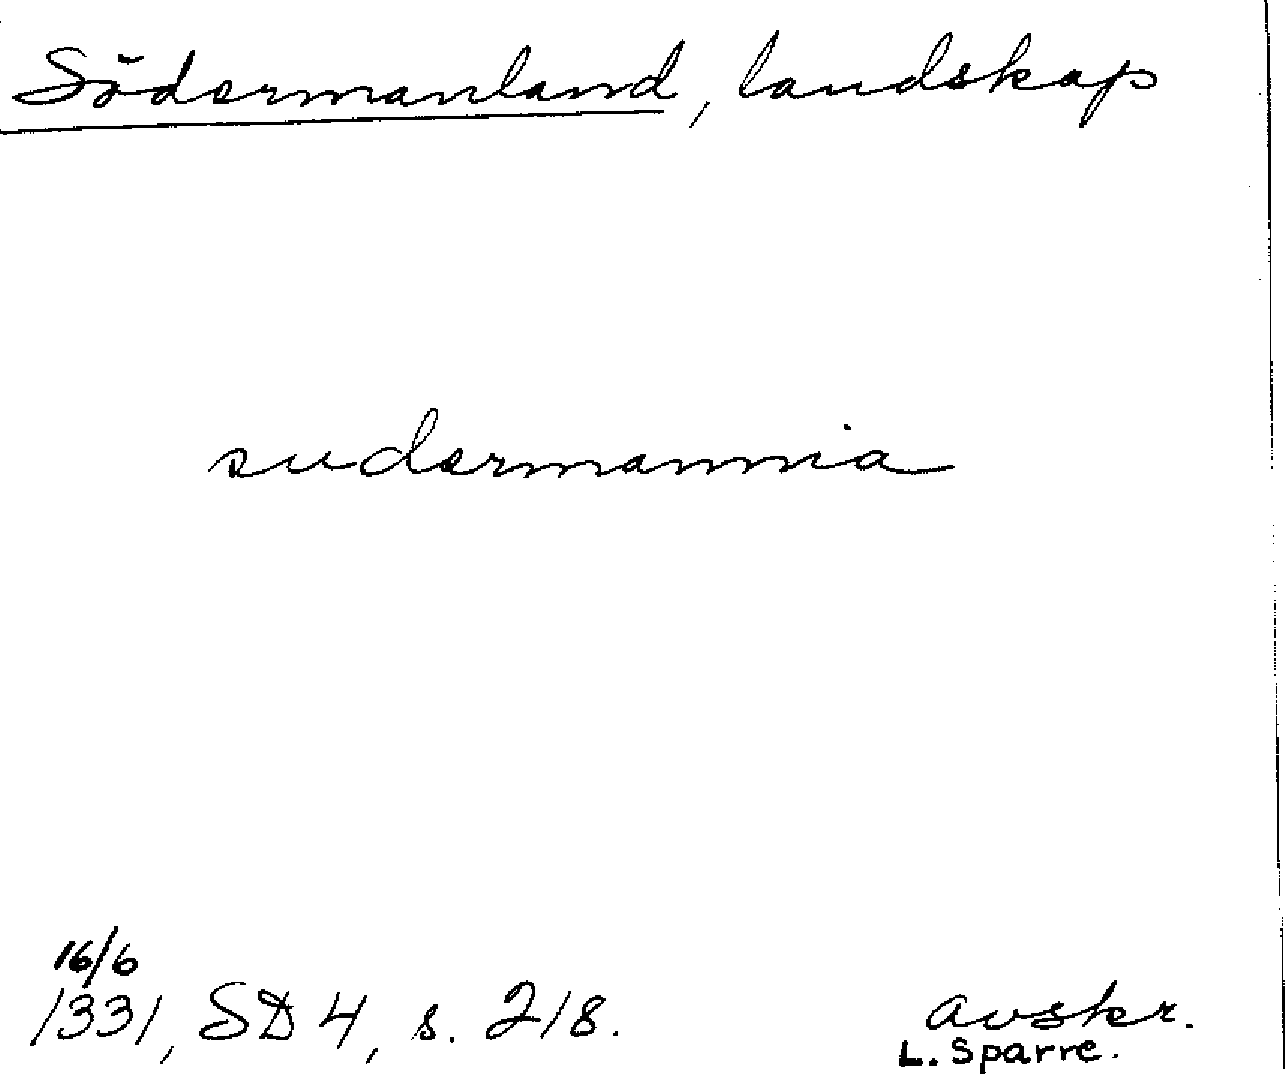 Södermanland, landskap
sudermannia
16/6
1331, SD 4, s. 218.
avskr.
L. Sparre.